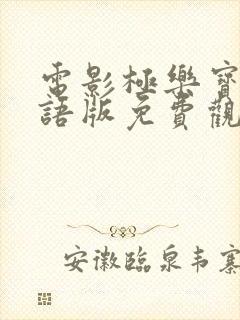 電影極樂寶
語版免費觀
安徽臨泉韦寨